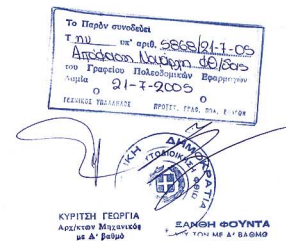 Το Παρόν συνοδεύει
Τ ην υπ' αριθ. 5868/21-7-05
Απόφαση Νομάρχη Φθ/δας
του Γραφείου Πολεοδομικών Εφαρμογών
Λαμία 21-7-2005
Ο Ο
ΤΕΧΝΙΚΟΣ ΥΠΑΛΛΗΛΟΣ ΠΡΟΪΣΤ. ΓΡΑΦ. ΠΟΛ. ΕΦ/ΓΩΝ
ΚΥΡΙΤΣΗ ΓΕΩΡΓΙΑ
Αρχ/κτων Μηχανικός
με Α' βαθμό
ΞΑΝΘΗ ΦΟΥΝΤΑ
ΤΟΝ ΜΕ Α' ΒΑΘΜΟ